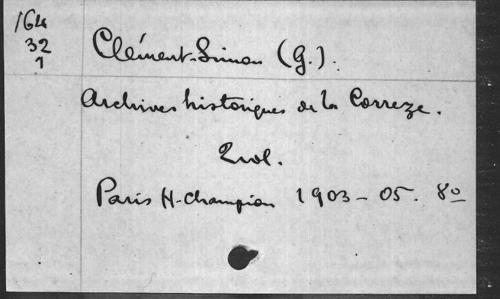 164
32
1
Clément-Simon (G.).
Archives historiques de la Correze.
2 vol.
Paris H. Champion 1903-05. 8o